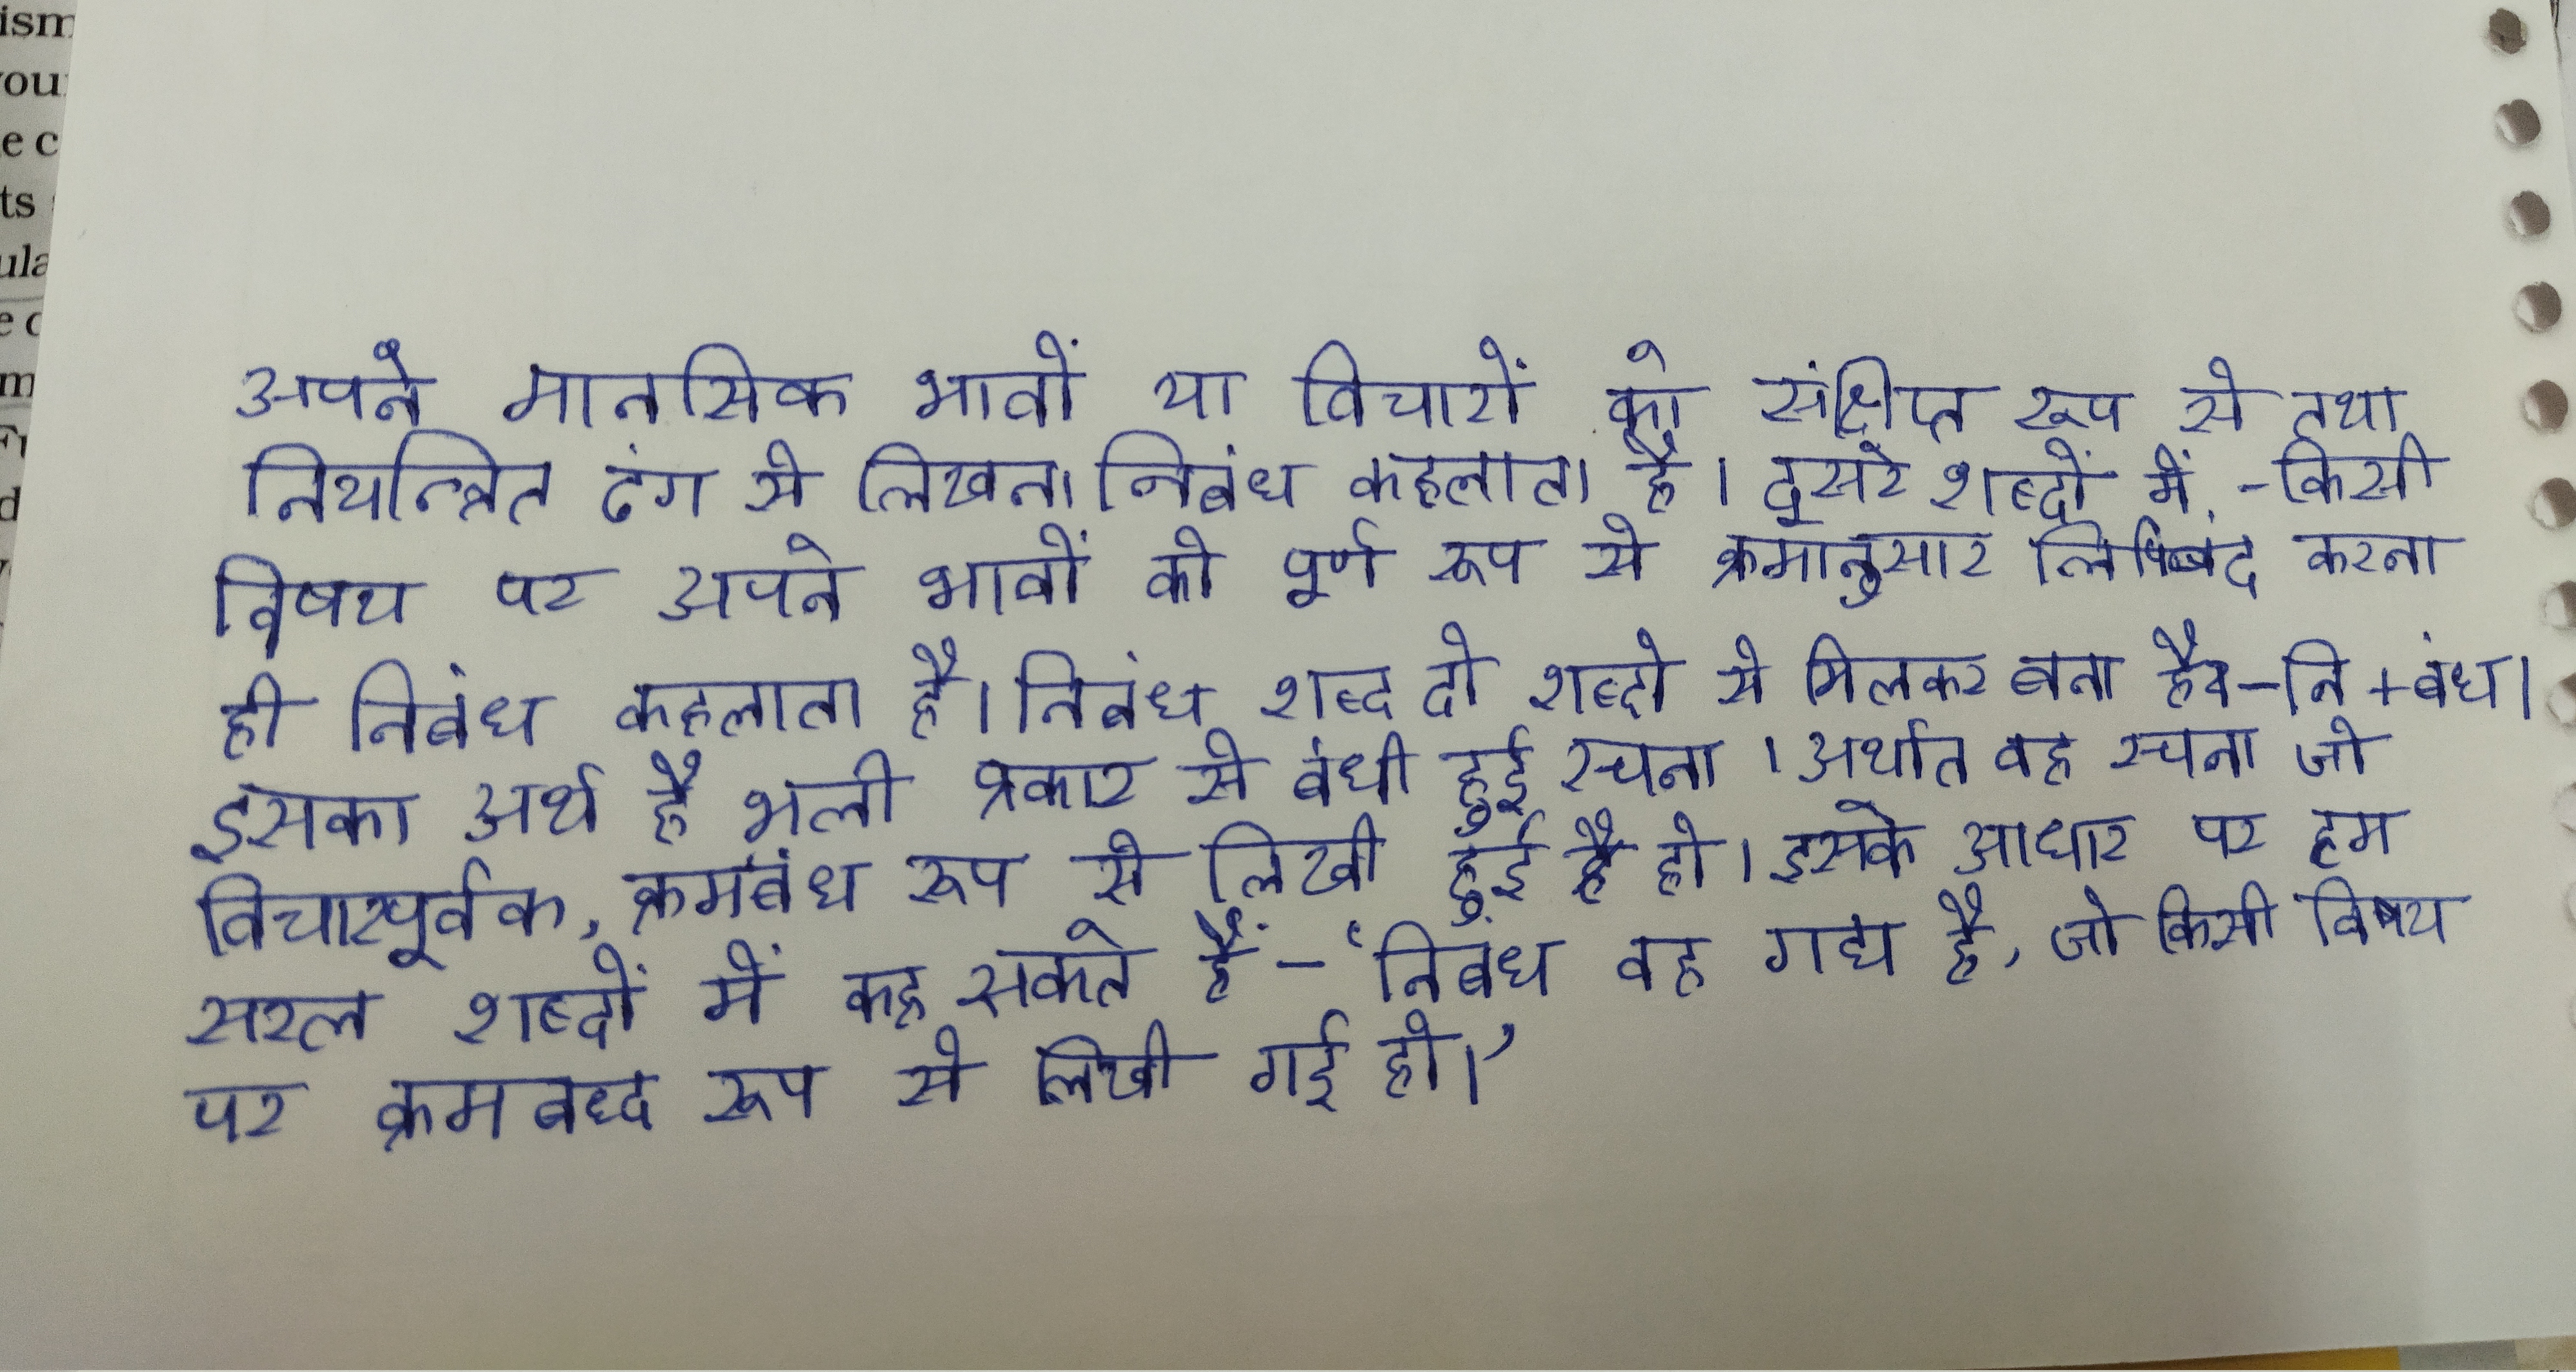 ism
you
e c
ts
ula
e c
m
d
अपने मानसिक भावों या विचारों को संक्षिप्त रूप से तथा
नियन्त्रित ढंग से लिखना निबंध कहलाता है। दूसरे शब्दों में, -किसी
विषय पर अपने भावों को पूर्ण रूप से क्रमानुसार लिपिबंद करना
ही निबंध कहलाता है। निबंध शब्द दो शब्दो से मिलकर बना है-नि+बंध।
इसका अर्थ है भली प्रकार से बंधी हुई रचना। अर्थात वह रचना जो
विचारपूर्वक, क्रमबंध रूप से लिखी हुई है हो। इसके आधार पर हम
सरल शब्दों में कह सकते हैं-'निबंध वह गद्य है, जो किसी विषय
पर क्रमबध्द रूप से लिखी गई हो।'